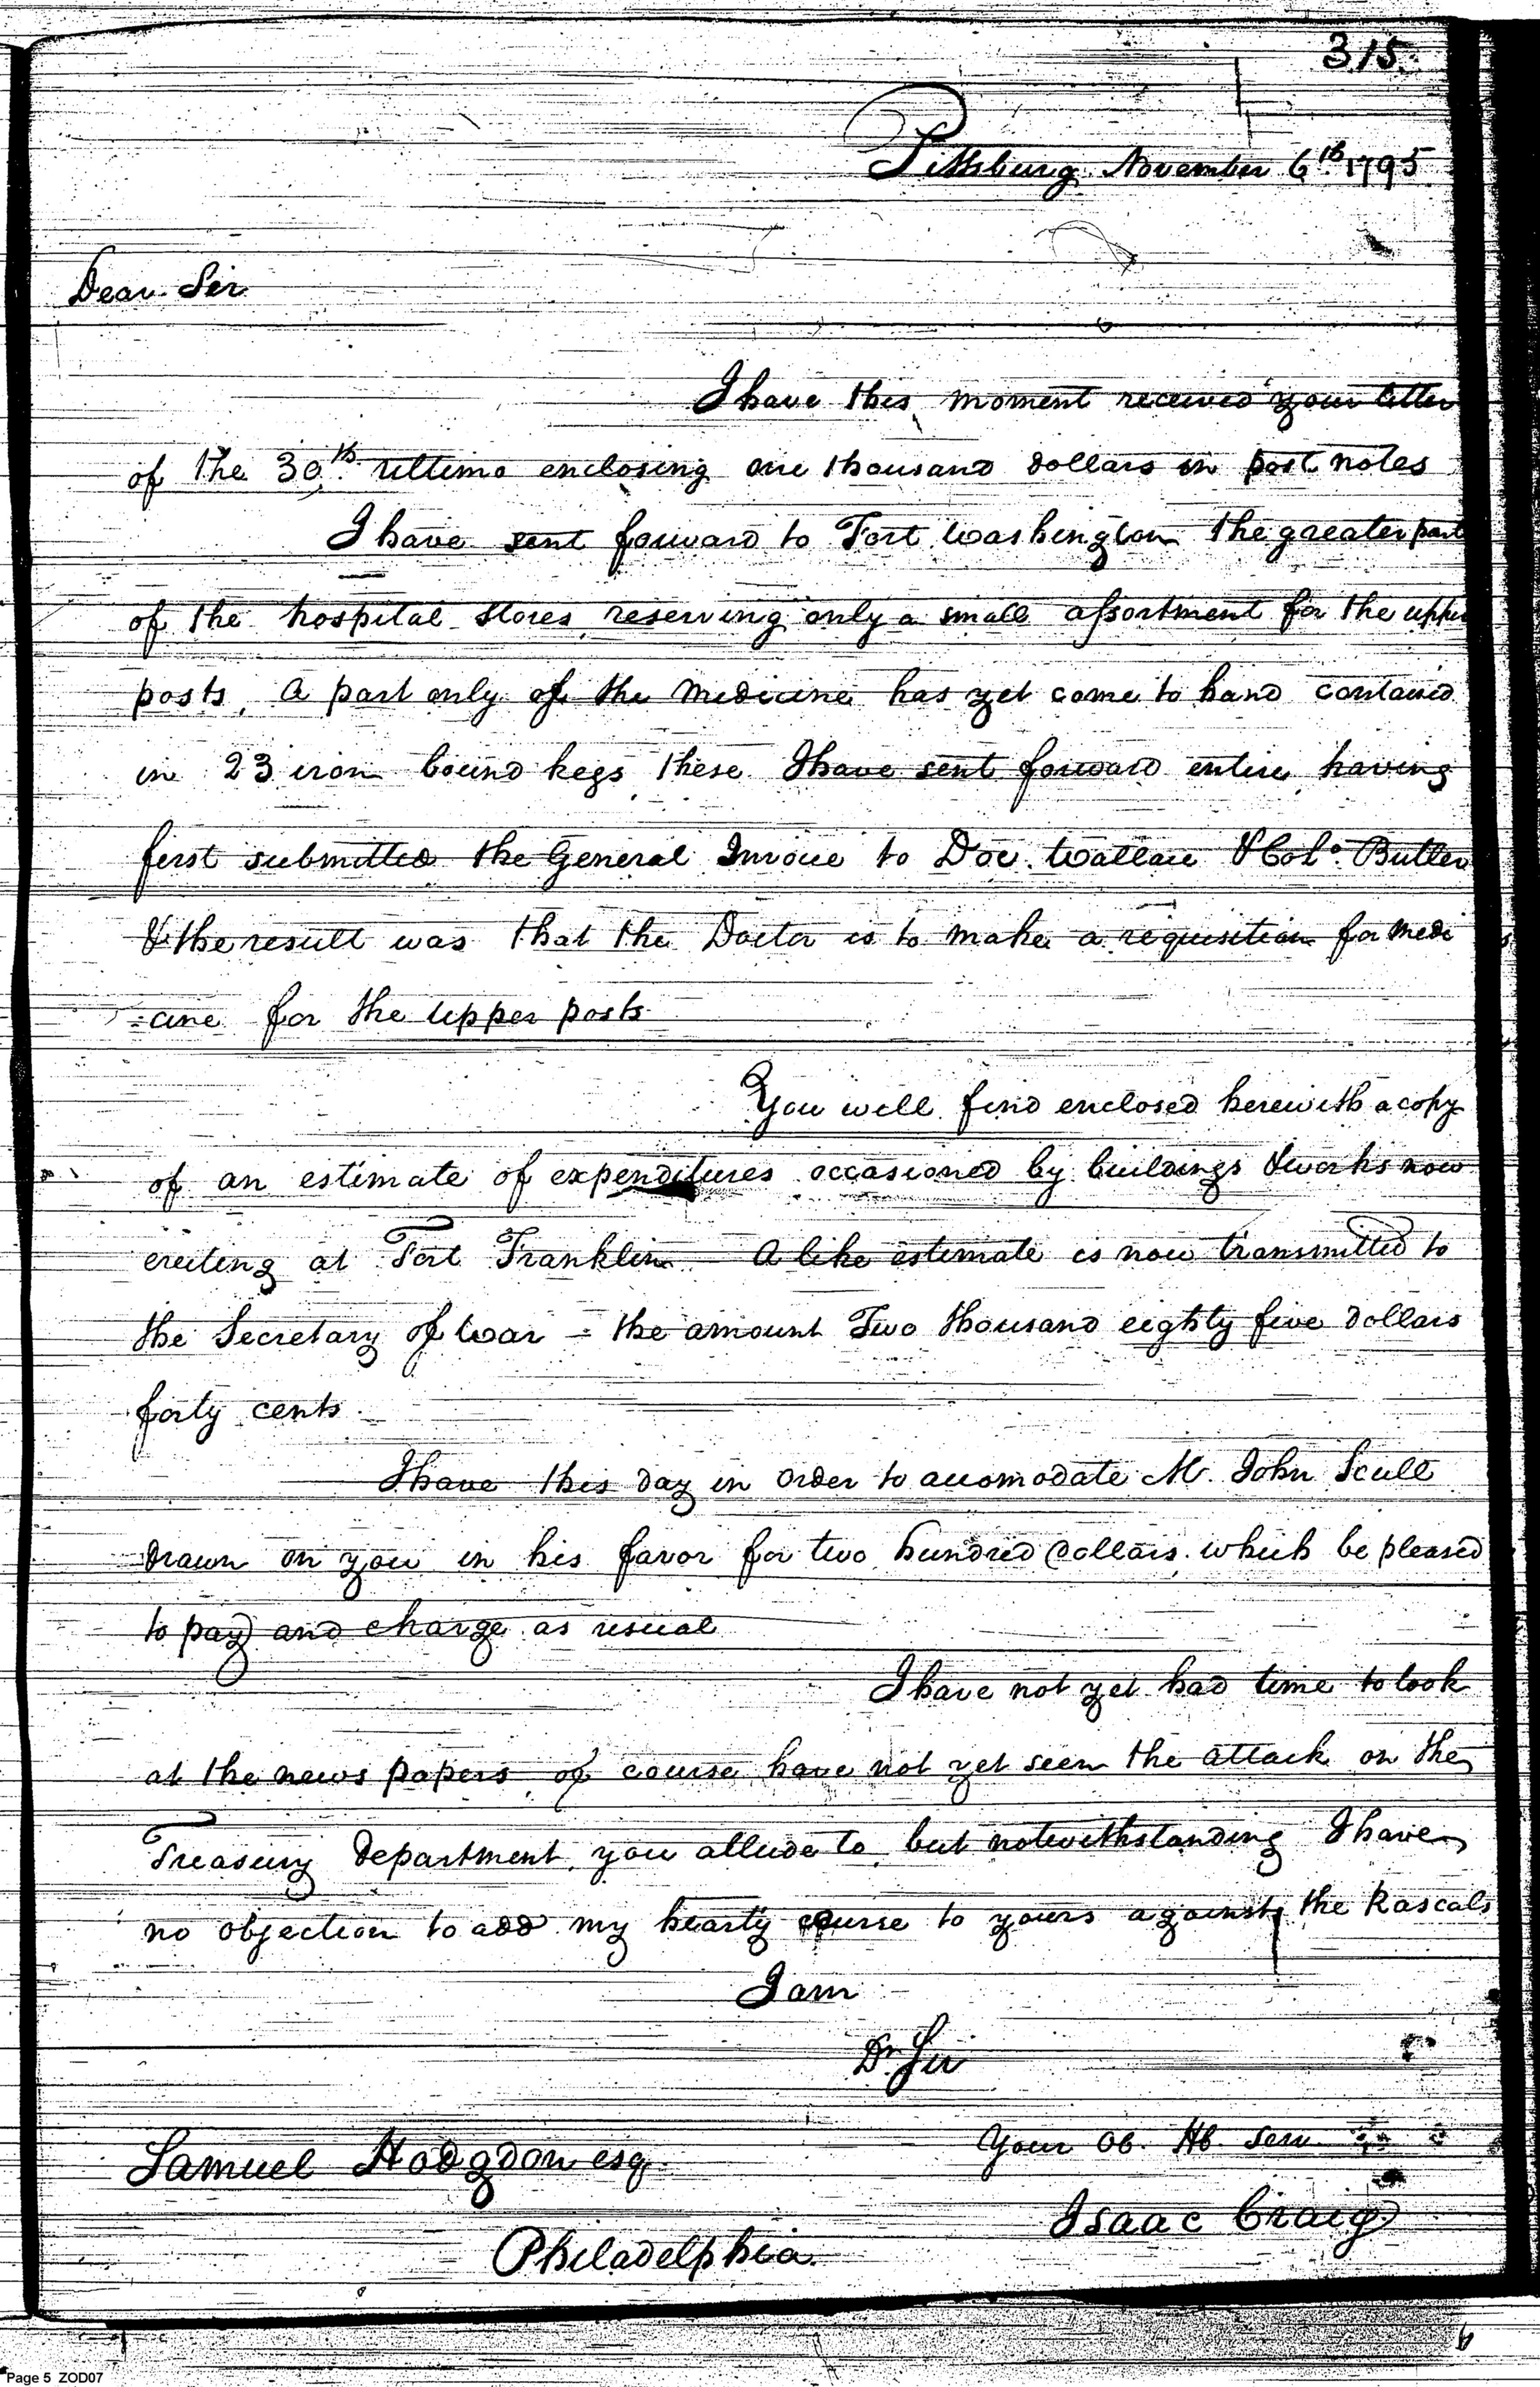 315
Pittsburg November 6th 1795
Dear Sir
I have this moment received your letter
of the 30th ultimo enclosing one thousand dollars in post notes
I have sent forward to Fort Washington the greater part
of the hospital stores reserving only a small assortment for the upper
posts, a part only of the medicine has yet come to hand contained
in 23 iron bound kegs these I have sent forward entire, having
first submitted the General Invoice to Doc. Wallace & Colo. Butler
& the result was that the Doctor is to make a requisition for medi
=cine for the upper posts
You will find enclosed herewith a copy
of an estimate of expenditures occasioned by buildings & works now
erecting at Fort Franklin A like estimate is now transmitted to
the Secretary of War = the amount Two thousand eighty five dollars
forty cents.
I have this day in order to accomodate Mr. John Scull
drawn on you in his favor for two hundred dollars. which be pleased
to pay and charge as usual
I have not yet had time to look
at the news papers, of course have not yet seen the attack on the
Treasury department, you allude to, but notwithstanding I have
no objection to add my hearty course to yours against the Rascals
I am
Dr. Sir
Your Ob. Hb. Serv.
Samuel Hodgdon esq.
Isaac Craig
Philadelphia.
Page 5 ZOD07